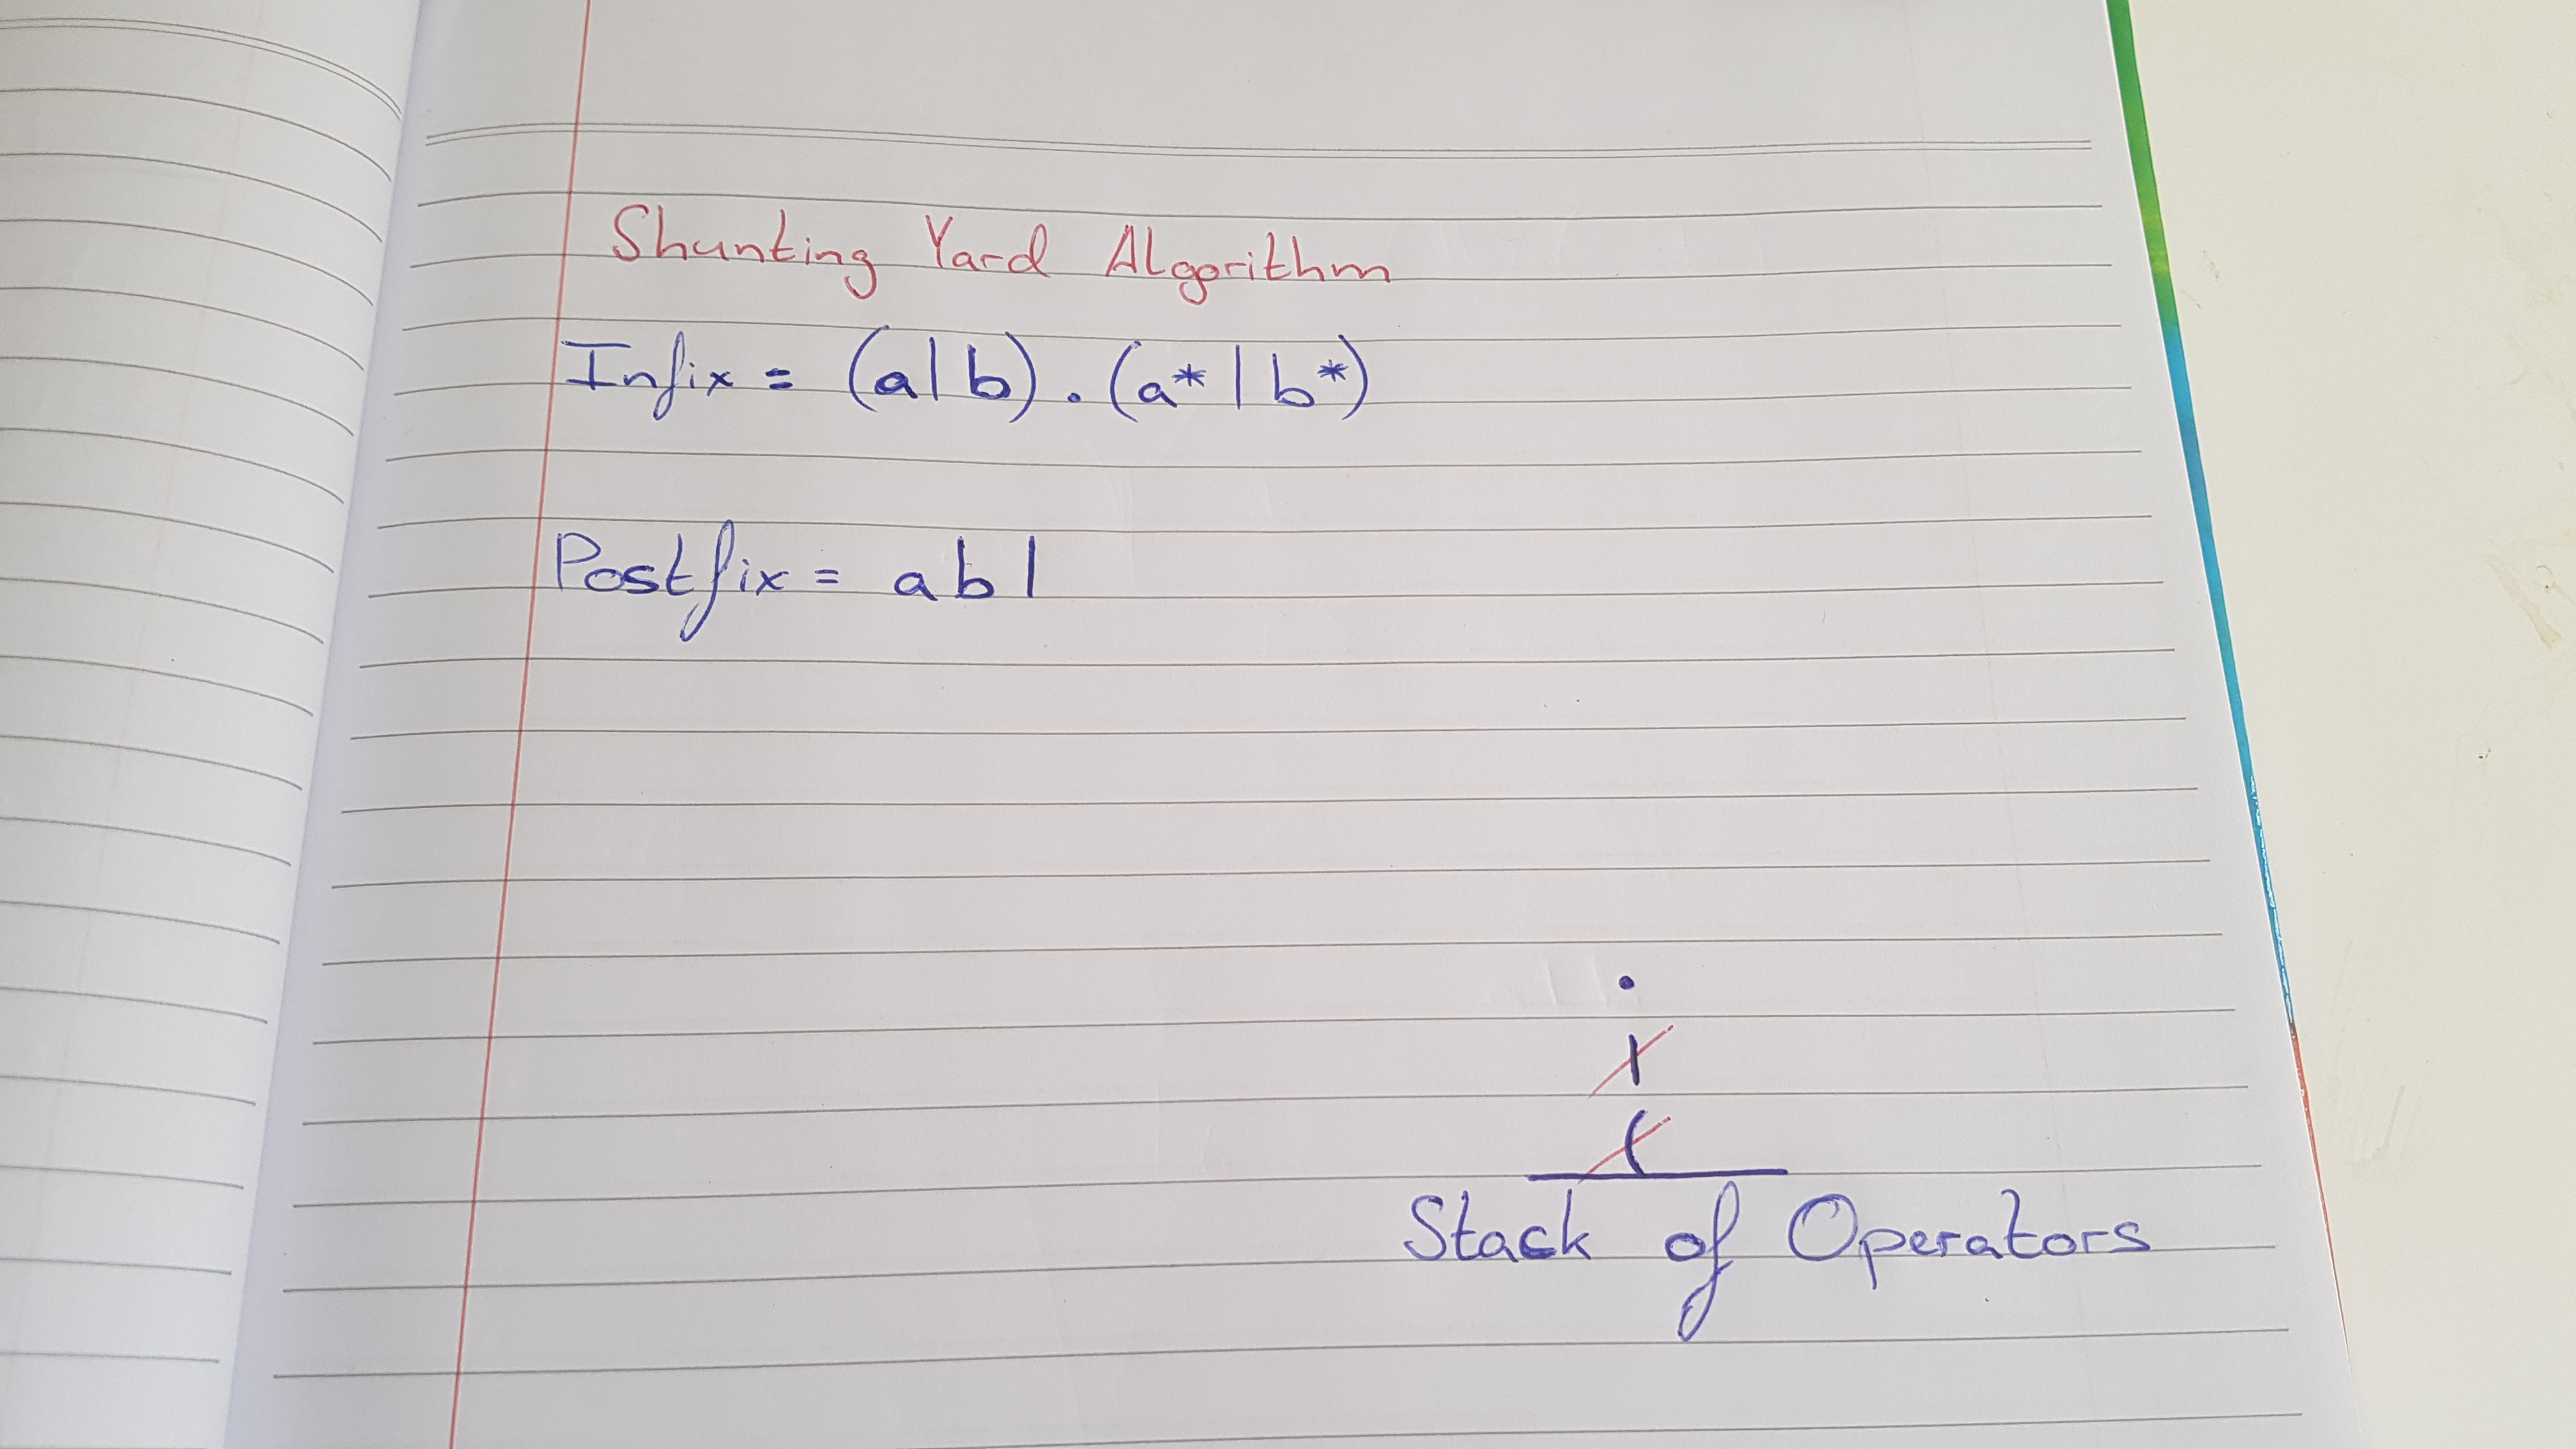 Shunting Yard Algorithm
Infix = (a|b).(a*|b*)
Postfix = ab|
.
|
(
Stack of Operators